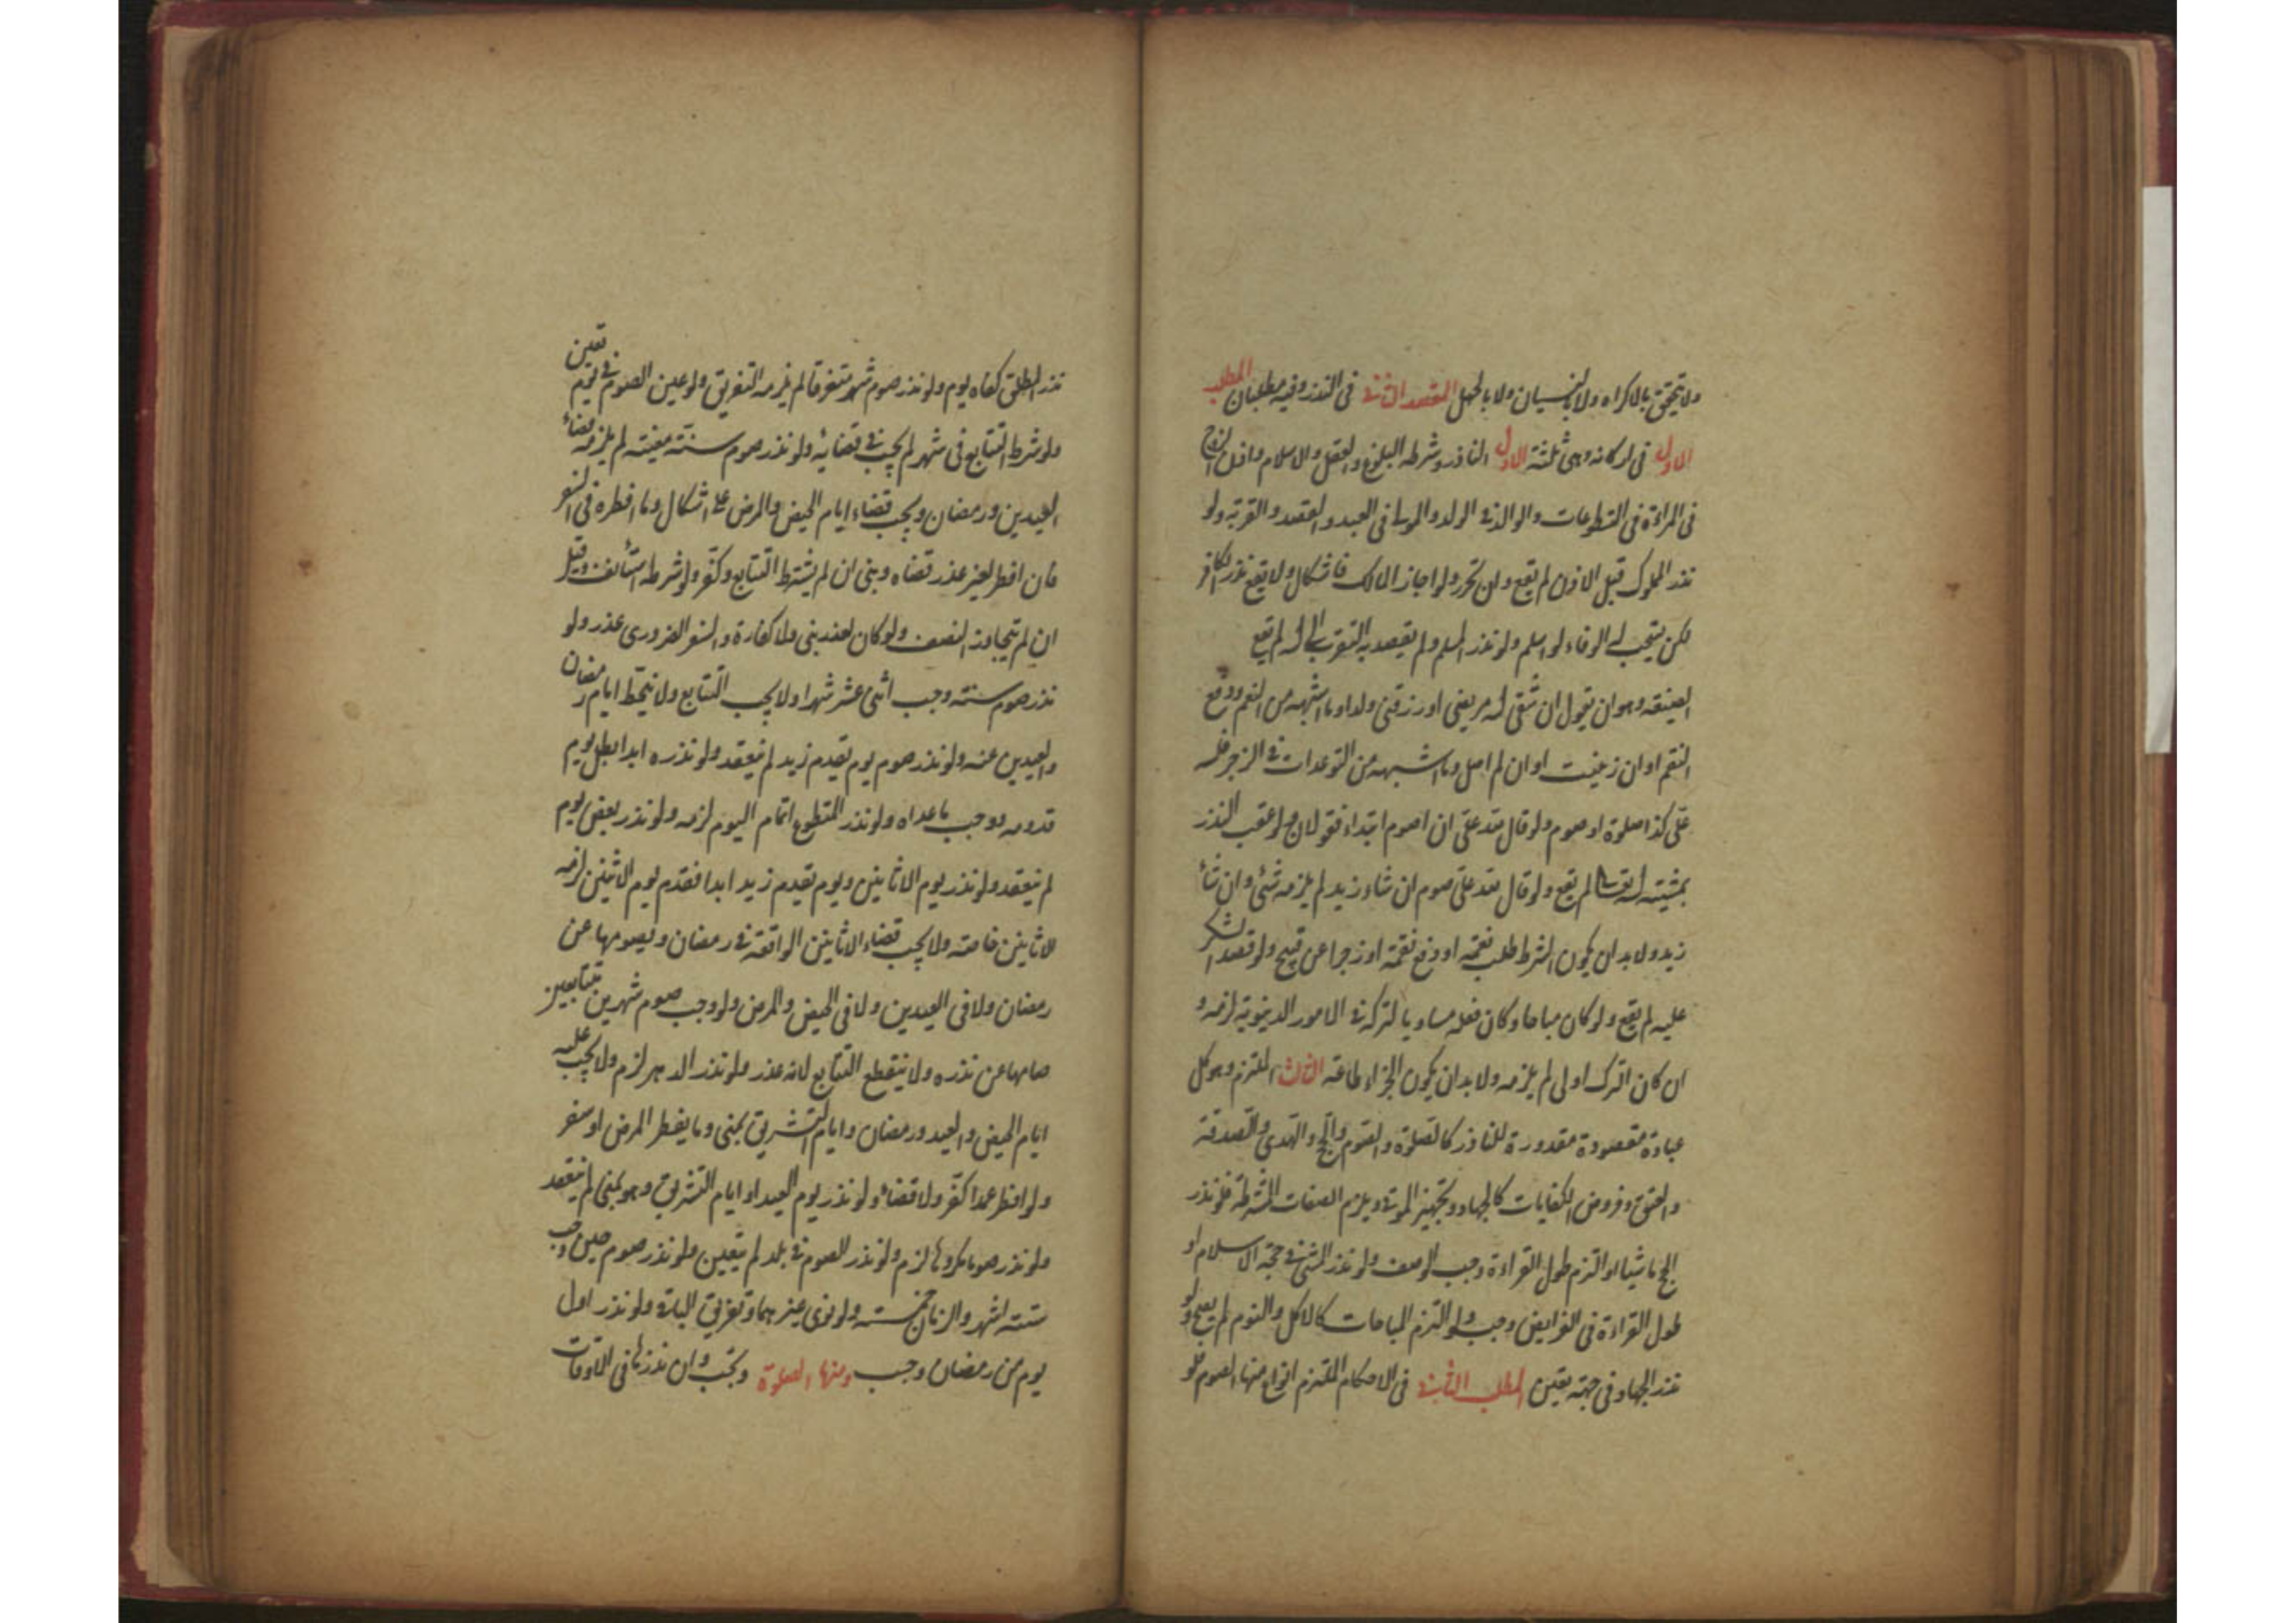 ولا يتحقق بالاكراه ولا بالنسيان ولا بالجهل المقصد الثاني في النذر وفيه مطلبان المطلب
الاول في اركانه وهي ثلثة الاول الناذر وشرطه البلوغ والعقل والاسلام واذن الزوج
في المراءة في التطوعات والوالد في الولد والمولى في العبد والقصد والقربة ولو
نذر المملوك قبل الاذن لم يقع وان تحرر ولو اجاز المالك فاشكال ولا يقع نذر الكافر
لكن يستحب له الوفاء لو اسلم ولو نذر المسلم ولم يقصد به التقرب الى الله لم يقع
الصيغة وهو ان يقول ان شفى الله مريضي او رزقني ولدا وما اشبهه من النعم ودفع
النقم او ان زنيت او ان لم اصل وما اشبهه من التوعدات في الزجر فلله
علي كذا صلوة او صوم ولو قال لله علي ان اصوم ابتداء فقولان ولو عقب النذر
بمشيته الله تعالى لم يقع ولو قال لله علي صوم ان شاء زيد لم يلزمه شئ وان شاء
زيد ولا بد ان يكون الشرط طلب نعمة او دفع نقمة او زجرا عن قبيح ولو قصد الشكر
عليه لم يقع ولو كان مباحا وكان فعله مساويا لتركه في الامور الدنيوية لزمه و
ان كان الترك اولى لم يلزمه ولا بد ان يكون الجزاء طاعة الثالث الملتزم وهو كل
عبادة مقصودة مقدورة للناذر كالصلوة والصوم والحج والهدي والصدقة
والعتق وفروض الكفايات كالجهاد وتجهيز الموتى ويلزم الصفات المشترطة فلو نذر
الحج ماشيا او التزم طول القراءة وجب الوصف ولو نذر المشي في حجة الاسلام او
طول القراءة في الفرايض وجب ولو التزم المباحات كالاكل والنوم لم يصح ولو
نذر الجهاد في جهة تعين المطلب الثاني في الاحكام الملتزم انواع منها الصوم فلو
نذر المطلق كفاه يوم ولو نذر صوم شهر متفرقا لم يلزمه التفريق ولو عين الصوم في يوم تعين
ولو شرط التتابع في شهر لم يجب في قضائه ولو نذر صوم سنة معينة لم يلزمه قضاء
العيدين ورمضان ويجب قضاء ايام الحيض والمرض على اشكال وما افطره في السفر
فان افطر لغير عذر قضاه وبنى ان لم يشترط التتابع وكفر ولو شرطه استأنف وقيل
ان لم يتجاوز النصف ولو كان لعذر بنى ولا كفارة والسفر الضروري عذر ولو
نذر صوم سنة وجب اثنى عشر شهرا ولا يجب التتابع ولا ينحط ايام رمضان
والعيدين عنه ولو نذر صوم يوم يقدم زيد لم ينعقد ولو نذره ابدا بطل يوم
قدومه ووجب ما عداه ولو نذر المتطوع اتمام اليوم لزمه ولو نذر بعض يوم
لم ينعقد ولو نذر يوم الاثانين ويوم يقدم زيد ابدا فقدم يوم الاثنين لزمه
الاثانين خاصة ولا يجب قضاء الاثانين الواقعة في رمضان ويصومها عن
رمضان ولا في العيدين ولا في الحيض والمرض ولو وجب صوم شهرين متتابعين
صامها عن نذره ولا ينقطع التتابع لانه عذر ولو نذر الدهر لزم ولا يجب عليه
ايام الحيض والعيد ورمضان وايام التشريق بمنى وما يفطر المرض او سفر
ولو افطر عمدا كفر ولا قضاء ولو نذر يوم العيد او ايام التشريق وهو بمنى لم ينعقد
ولو نذر صوما مكروها لزم ولو نذر الصوم في بلد لم يتعين ولو نذر صوم حين وجب
ستة اشهر والزمان خمسة ولو نوى غيرهما وتفريق البلدة ولو نذر اول
يوم من رمضان وجب ومنها الصلوة وتجب وان نذرها في الاوقات